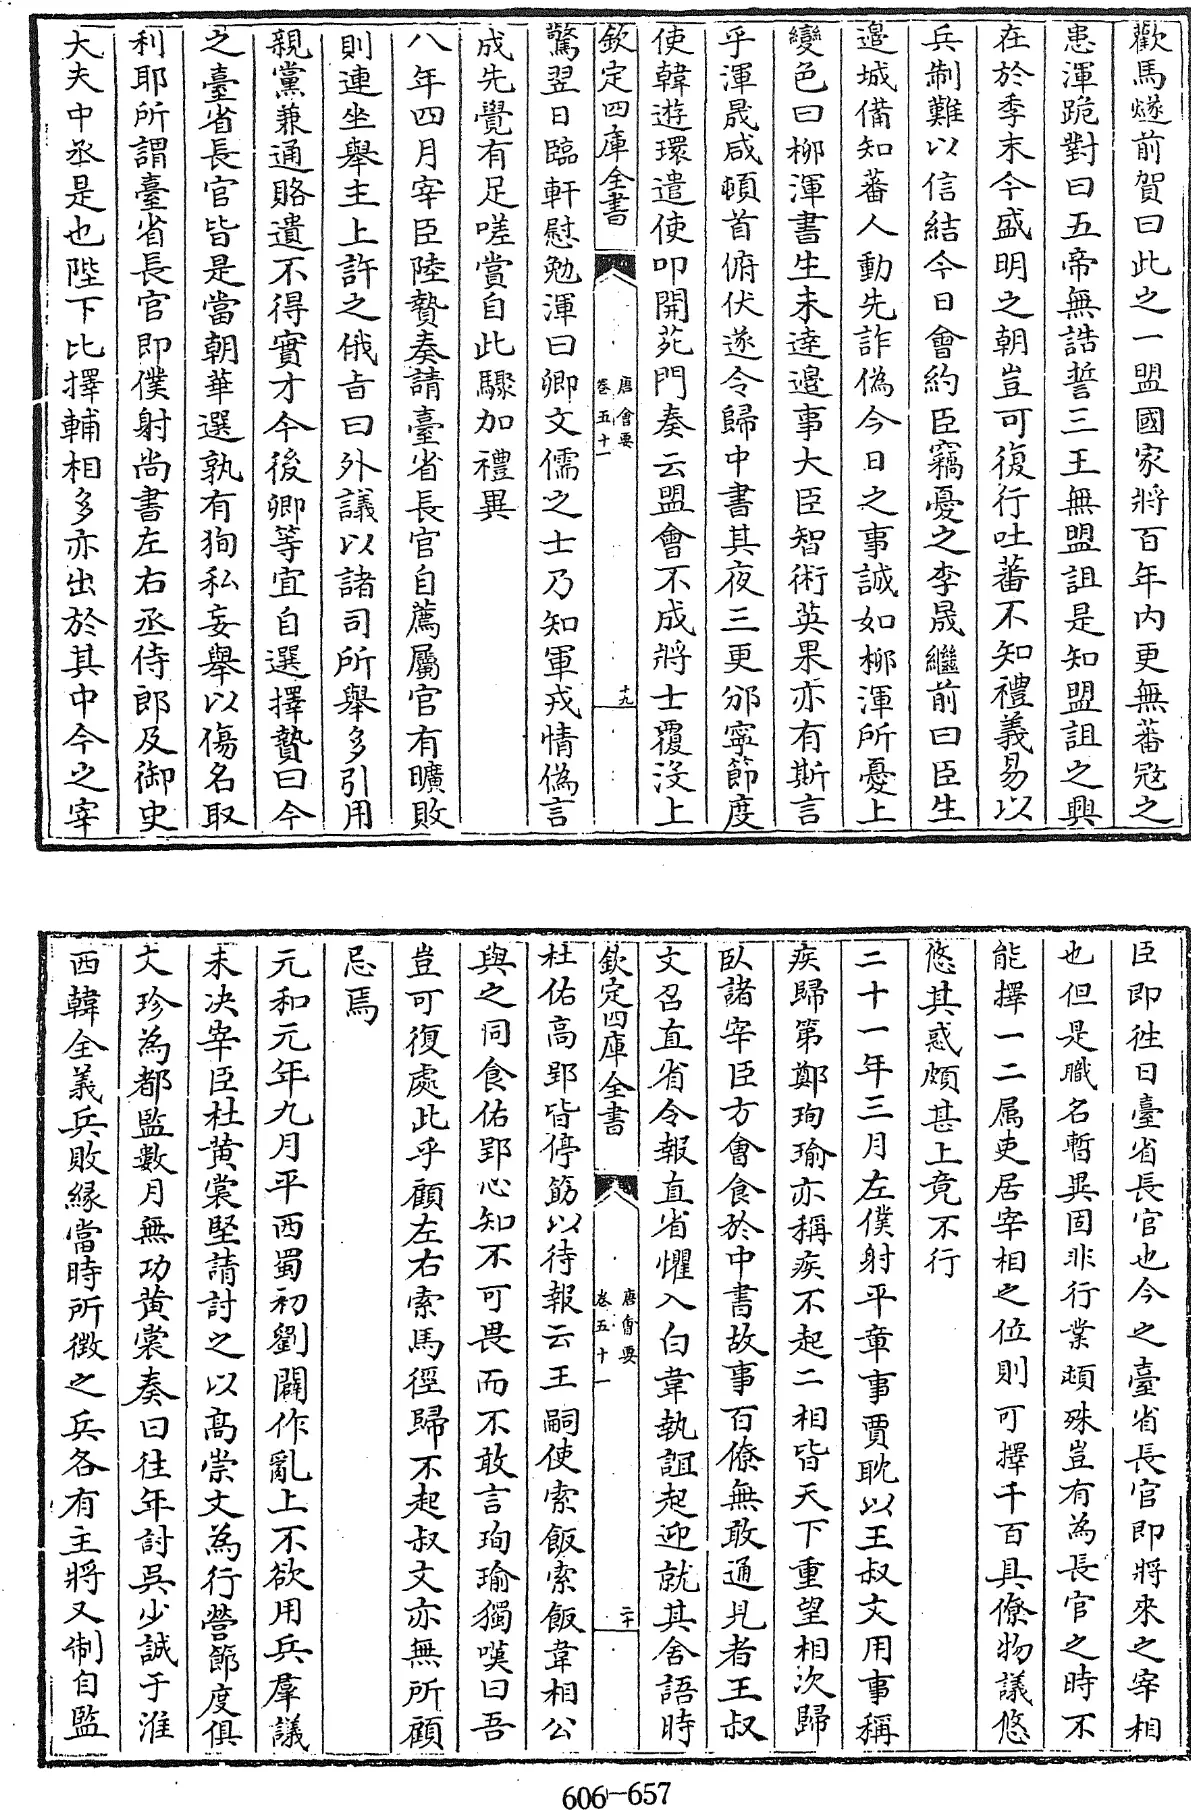 歡馬燧前賀曰此之一盟國家將百年内更無蕃寇之
患渾跪對曰五帝無誥誓三王無盟詛是知盟詛之興
在於季末今盛明之朝豈可復行吐蕃不知禮義易以
兵制難以信結今日會約臣竊憂之李晟繼前曰臣生
邉城備知蕃人動先詐偽今日之事誠如栁渾所憂上
變色曰栁渾書生未達邉事大臣智術英果亦有斯言
乎渾晟咸頓首俯伏遂令歸中書其夜三更邠寧節度
使韓遊環遣使叩開苑門奏云盟會不成將士覆没上
欽定四庫全書
唐會要
卷五十一
十九
驚翌日臨軒慰勉渾曰卿文儒之士乃知軍戎情偽言
成先覺有足嗟賞自此驟加禮異
八年四月宰臣陸贄奏請臺省長官自薦屬官有曠敗
則連坐舉主上許之俄㫖曰外議以諸司所舉多引用
親黨兼通賂遺不得實才今後卿等宜自選擇贄曰今
之臺省長官皆是當朝華選孰有狥私妄舉以傷名取
利耶所謂臺省長官即僕射尚書左右丞侍郎及御史
大夫中丞是也陛下比擇輔相多亦出於其中今之宰
臣即徃日臺省長官也今之臺省長官即將來之宰相
也但是職名暫異固非行業頓殊豈有為長官之時不
能擇一二属吏居宰相之位則可擇千百具僚物議悠
悠其惑頗甚上竟不行
二十一年三月左僕射平章事賈耽以王叔文用事稱
疾歸第鄭珣瑜亦稱疾不起二相皆天下重望相次歸
臥諸宰臣方會食於中書故事百僚無敢通見者王叔
文召直省令報直省懼入白韋執誼起迎就其舍語時
欽定四庫全書
唐會要
卷五十一
二十
杜佑高郢皆停筯以待報云王嗣使索飯索飯韋相公
與之同食佑郢心知不可畏而不敢言珣瑜獨嘆曰吾
豈可復處此乎顧左右索馬徑歸不起叔文亦無所顧
忌焉
元和元年九月平西蜀初劉闢作亂上不欲用兵羣議
未决宰臣杜黄裳堅請討之以高崇文為行營節度俱
文珍為都監數月無功黄裳奏曰往年討吳少誠于淮
西韓全義兵敗縁當時所徴之兵各有主將又制自監
606-657